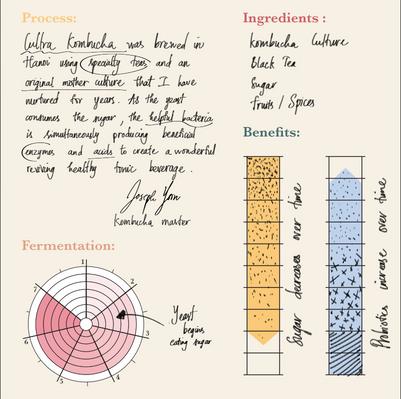 Process:
Cultra Kombucha was brewed in
Hanoi using specialty teas and an
original mother culture that I have
nurtured for years. As the yeast
consumes the sugar, the helpful bacteria
is simultaneously producing beneficial
enzymes and acids to create a wonderful
reviving healthy tonic beverage.
Joseph
Kombucha master
Ingredients :
Kombucha Culture
Black Tea
Sugar
Fruits / Spices
Benefits:
Sugar decreases over time
Probiotics increase over time
Fermentation:
1
2
3
4
5
6
7
Yeast
begins
eating sugar